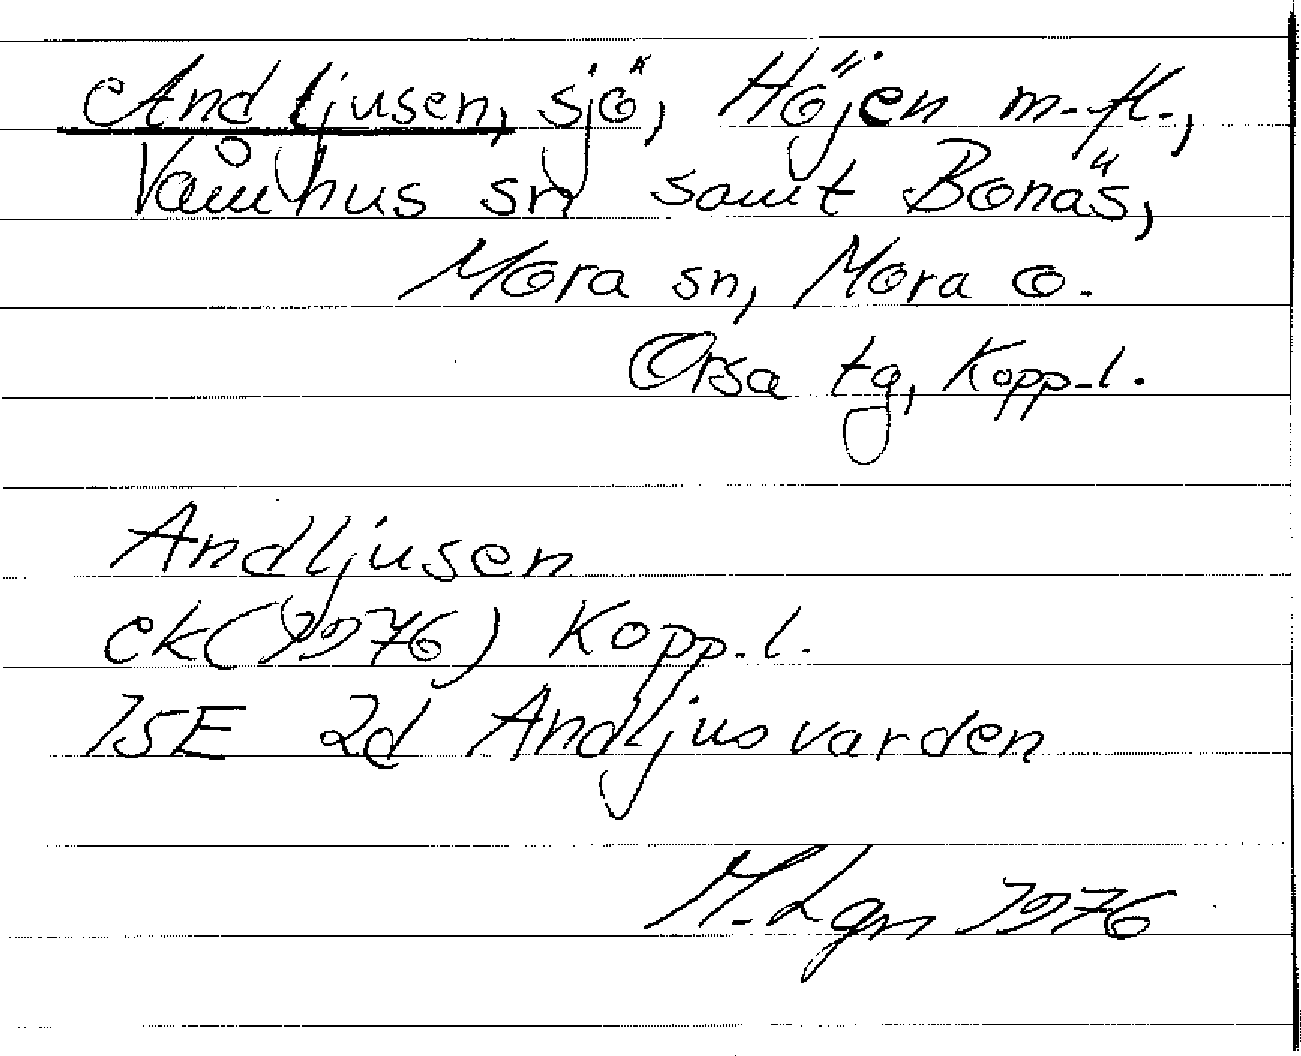 Andljusen, sjö, Höjen m.fl.,
Våmhus sn samt Bonäs,
Mora sn, Mora o.
Orsa tg, Kopp.l.
Andljusen
ek(1976) Kopp.l.
15E 2d Andljusvarden
M.Lgn 1976